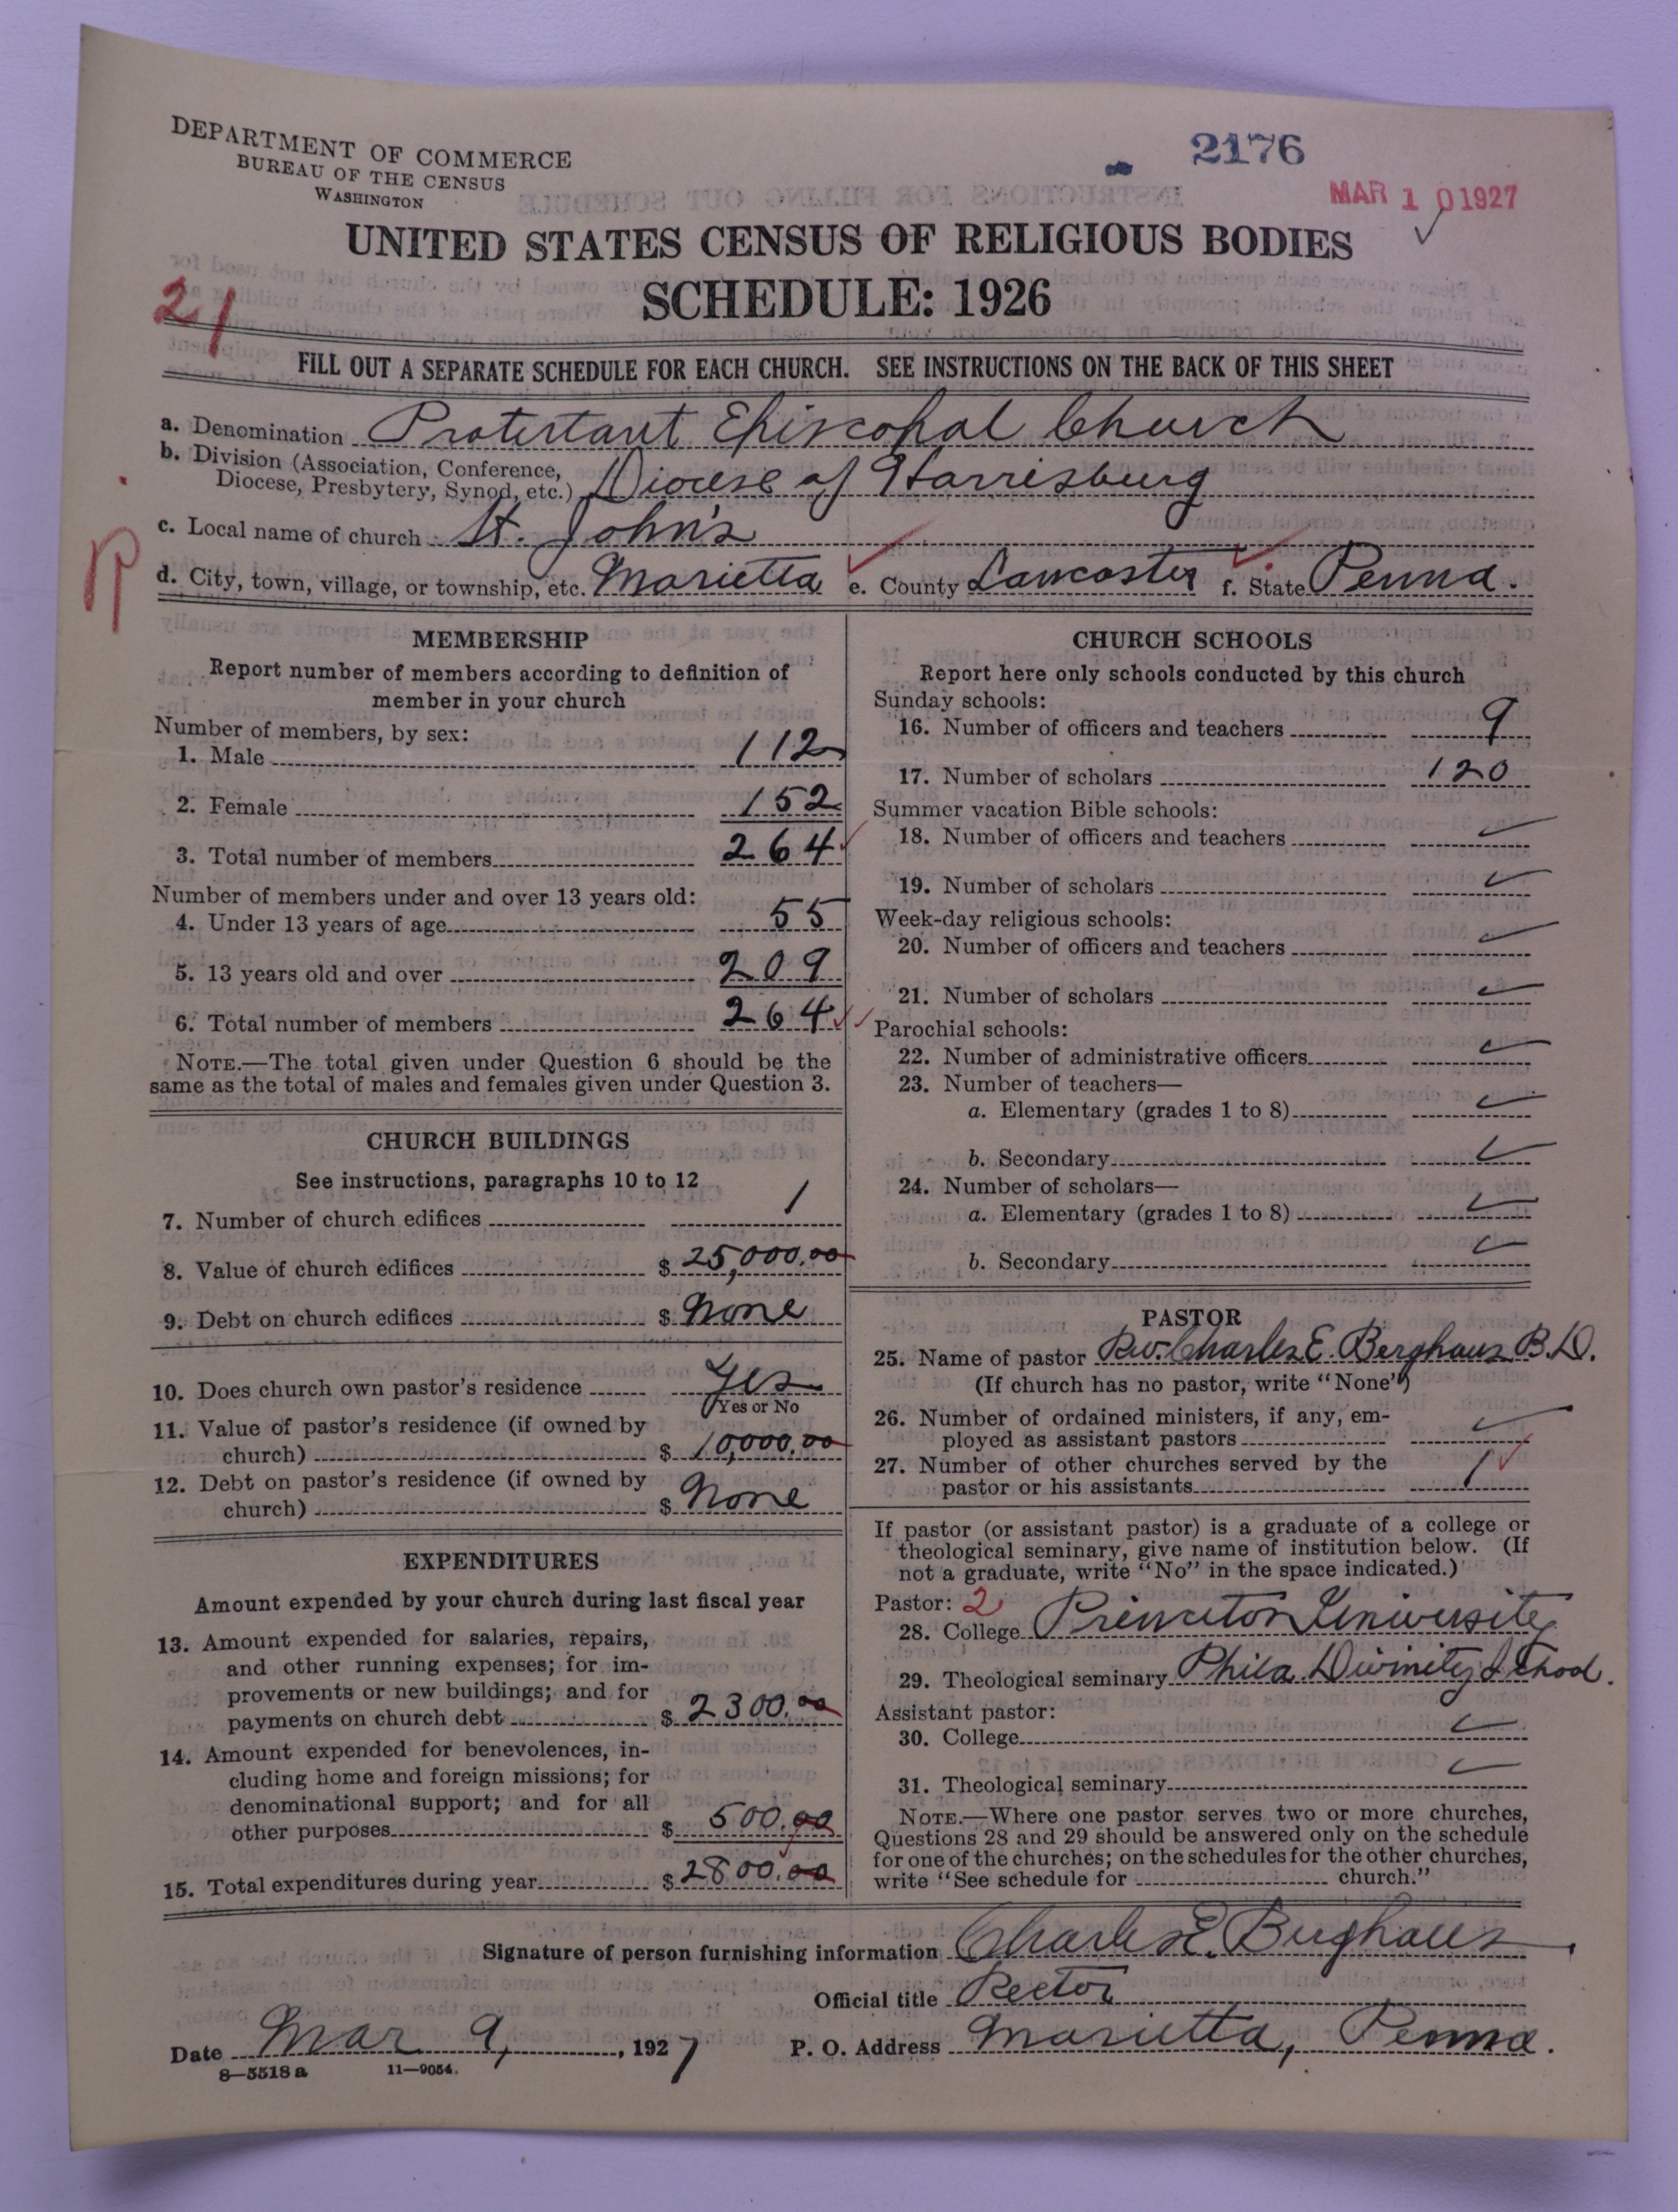 DEPARTMENT OF COMMERCE
BUREAU OF THE CENSUS
WASHINGTON
2176
MAR 10 1927
UNITED STATES CENSUS OF RELIGIOUS BODIES
SCHEDULE: 1926
21
FILL OUT A SEPARATE SCHEDULE FOR EACH CHURCH. SEE INSTRUCTIONS ON THE BACK OF THIS SHEET
a. Denomination Protestant Episcopal Church
b. Division (Association, Conference,
Diocese, Presbytery, Synod, etc.) Diocese of Harrisburg
c. Local name of church St. John's
d. City, town, village, or township, etc. Marietta e. County Lancaster f. State Penna.
MEMBERSHIP
Report number of members according to definition of
member in your church
Number of members, by sex:
1. Male 112
2. Female 152
3. Total number of members 264
Number of members under and over 13 years old:
4. Under 13 years of age 55
5. 13 years old and over 209
6. Total number of members 264
NOTE.—The total given under Question 6 should be the
same as the total of males and females given under Question 3.
CHURCH BUILDINGS
See instructions, paragraphs 10 to 12
7. Number of church edifices 1
8. Value of church edifices $ 25,000.00
9. Debt on church edifices $ None
10. Does church own pastor's residence Yes
Yes or No
11. Value of pastor's residence (if owned by
church) $ 10,000.00
12. Debt on pastor's residence (if owned by
church) $ None
EXPENDITURES
Amount expended by your church during last fiscal year
13. Amount expended for salaries, repairs,
and other running expenses; for im-
provements or new buildings; and for
payments on church debt $ 2300.00
14. Amount expended for benevolences, in-
cluding home and foreign missions; for
denominational support; and for all
other purposes $ 500.00
15. Total expenditures during year $ 2800.00
CHURCH SCHOOLS
Report here only schools conducted by this church
Sunday schools:
16. Number of officers and teachers 9
17. Number of scholars 120
Summer vacation Bible schools:
18. Number of officers and teachers
19. Number of scholars
Week-day religious schools:
20. Number of officers and teachers
21. Number of scholars
Parochial schools:
22. Number of administrative officers
23. Number of teachers—
a. Elementary (grades 1 to 8)
b. Secondary
24. Number of scholars—
a. Elementary (grades 1 to 8)
b. Secondary
PASTOR
25. Name of pastor Rev. Charles E. Berghaus B.D.
(If church has no pastor, write "None")
26. Number of ordained ministers, if any, em-
ployed as assistant pastors
27. Number of other churches served by the
pastor or his assistants 1
If pastor (or assistant pastor) is a graduate of a college or
theological seminary, give name of institution below. (If
not a graduate, write "No" in the space indicated.)
Pastor: 2
28. College Princeton University
29. Theological seminary Phila. Divinity School.
Assistant pastor:
30. College
31. Theological seminary
NOTE.—Where one pastor serves two or more churches,
Questions 28 and 29 should be answered only on the schedule
for one of the churches; on the schedules for the other churches,
write "See schedule for church."
Signature of person furnishing information Charles E. Berghaus
Official title Rector
Date Mar 9, 1927 P. O. Address Marietta, Penna.
8—5518 a 11—9054.